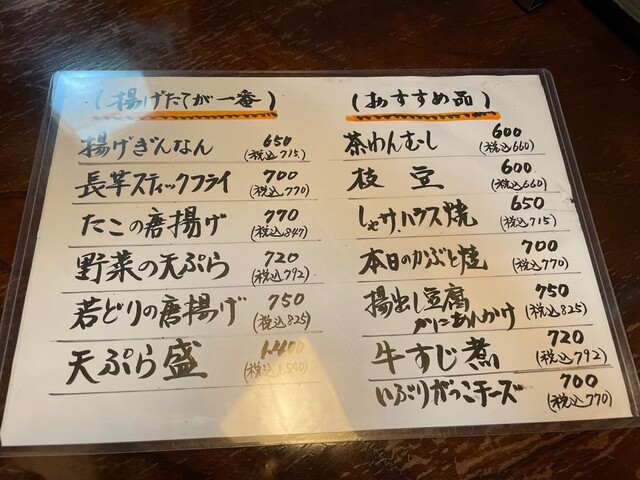 (揚げたてが一番)
揚げぎんなん 650
(税込715)
長芋スティックフライ 700
(税込770)
たこの唐揚げ 770
(税込847)
野菜の天ぷら 720
(税込792)
若どりの唐揚げ 750
(税込825)
天ぷら盛 1.400
(税込1,540)
(おすすめ品)
茶わんむし 600
(税込660)
枝豆 600
(税込660)
ハラス焼 650
(税込715)
本日のかぶと焼 700
(税込770)
揚出し豆腐 750
かにあんかけ (税込825)
牛すじ煮 720
(税込792)
いぶりがっこチーズ 700
(税込770)